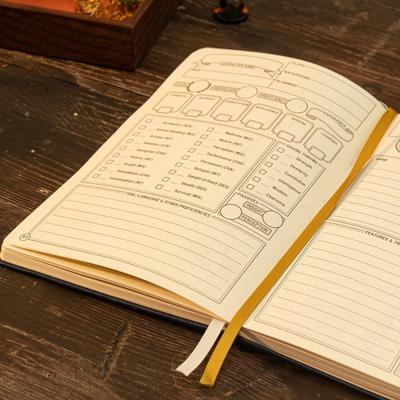 CLASS
CHARACTER NAME
BACKGROUND
ALIGNMENT
INSPIRATION
PROFICIENCY
EXPERIENCE
Acrobatics (DEX)
Animal Handling (WIS)
Arcana (INT)
Athletics (STR)
Deception (CHA)
History (INT)
Insight (WIS)
Intimidation (CHA)
Investigation (INT)
Medicine (WIS)
Nature (INT)
Perception (WIS)
Performance (CHA)
Persuasion (CHA)
Religion (INT)
Sleight of Hand (DEX)
Stealth (DEX)
Survival (WIS)
SAVING THROWS
Strength
Dexterity
Constitution
Intelligence
Wisdom
Charisma
PASSIVES
INSIGHT
PERCEPTION
TOOL, LANGUAGE & OTHER PROFICIENCIES
NAME
FEATURES & TR